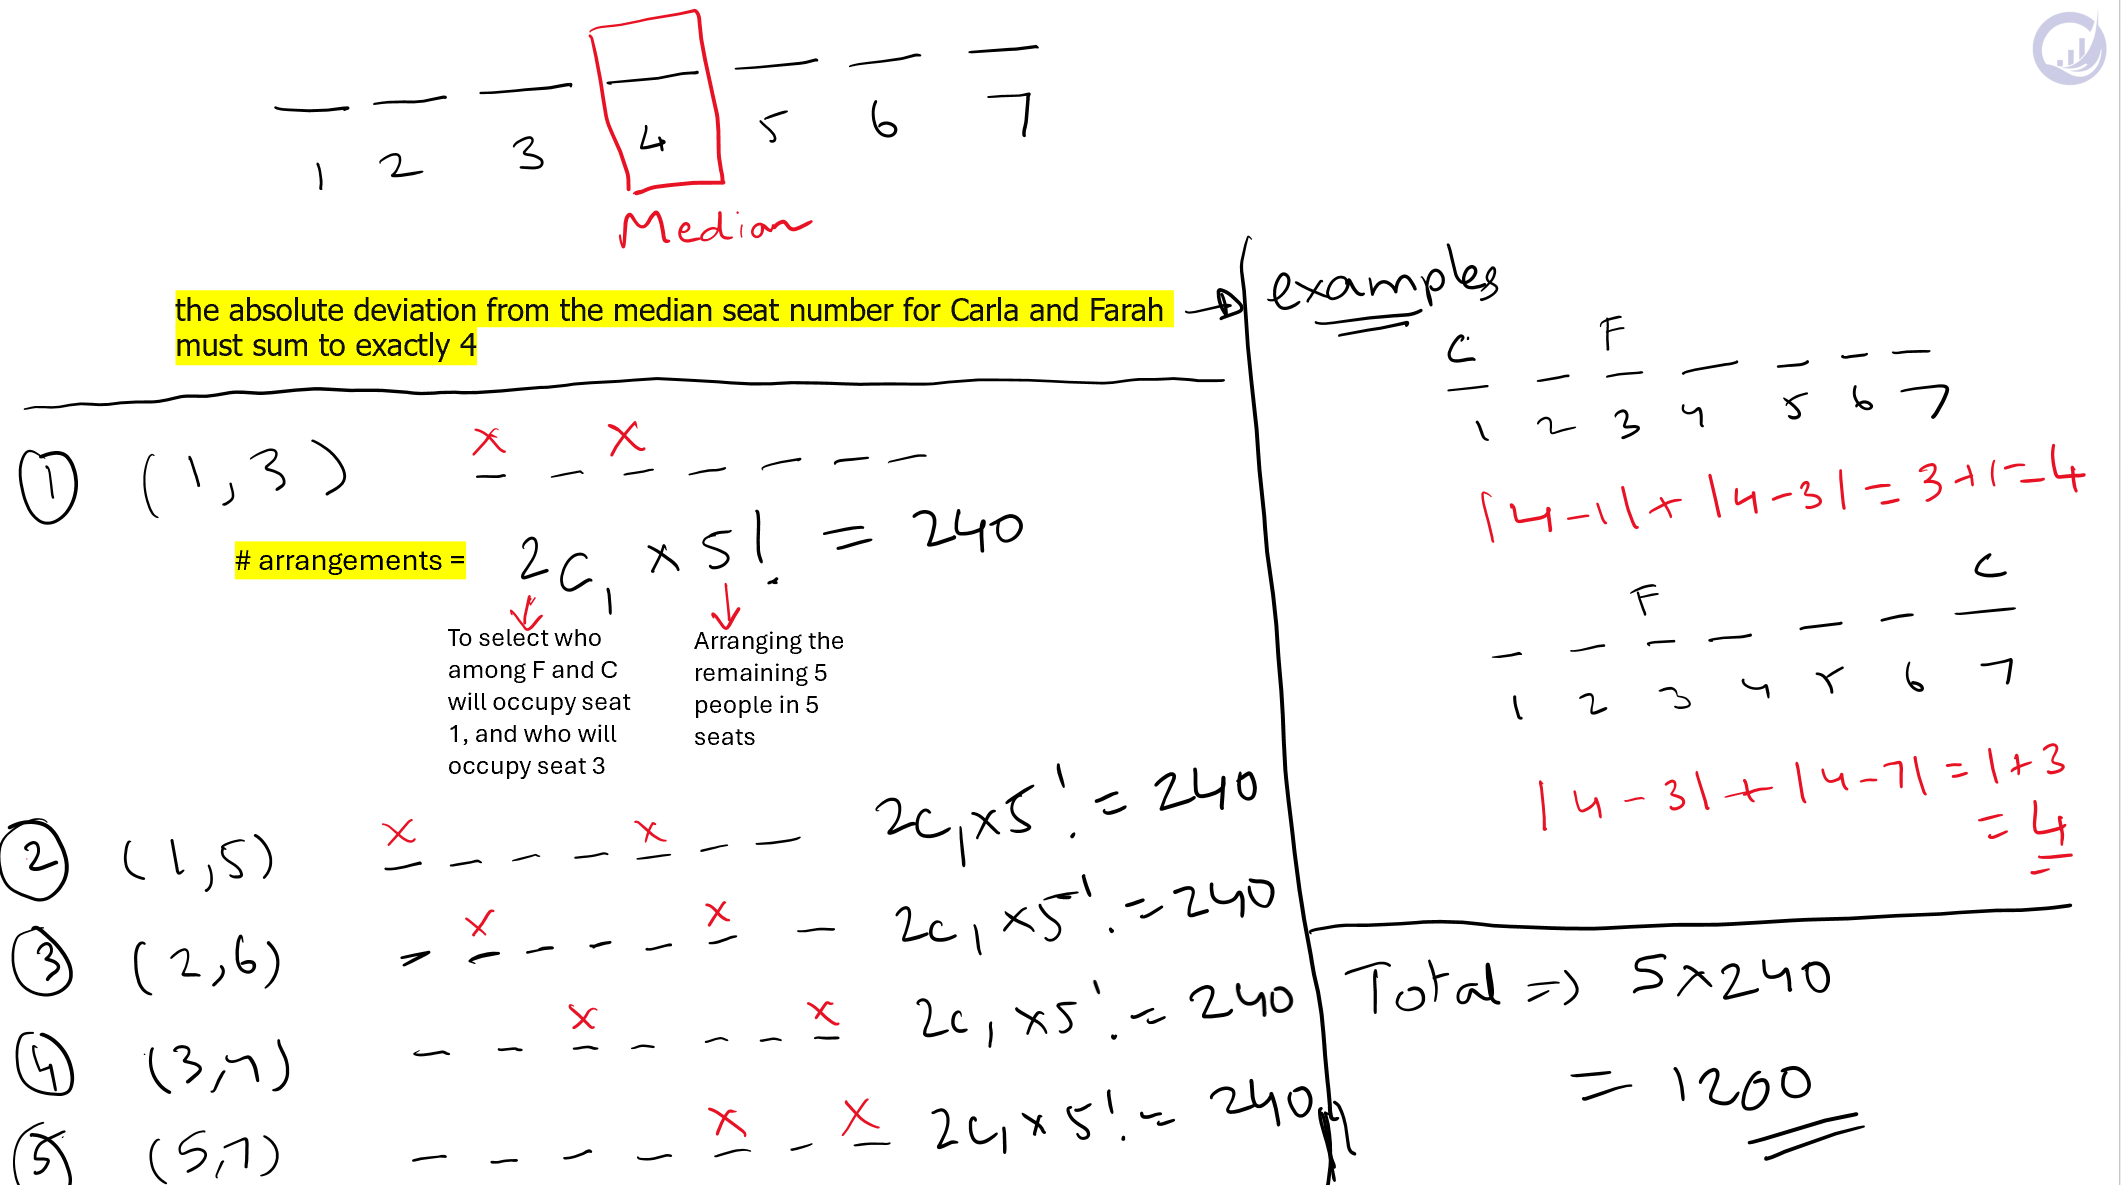 1 2 3 4 5 6 7
Median
the absolute deviation from the median seat number for Carla and Farah
must sum to exactly 4
① (1,3) x x
# arrangements = 2C₁ × 5! = 240
To select who
among F and C
will occupy seat
1, and who will
occupy seat 3
Arranging the
remaining 5
people in 5
seats
② (1,5) x x 2C₁×5! = 240
③ (2,6) x x 2C₁×5! = 240
④ (3,7) x x 2C₁×5! = 240
⑤ (5,7) x x 2C₁×5! = 240
examples
C F
1 2 3 4 5 6 7
|4-1| + |4-3| = 3+1 = 4
F C
1 2 3 4 5 6 7
|4-3| + |4-7| = 1+3
= 4
Total => 5×240
= 1200